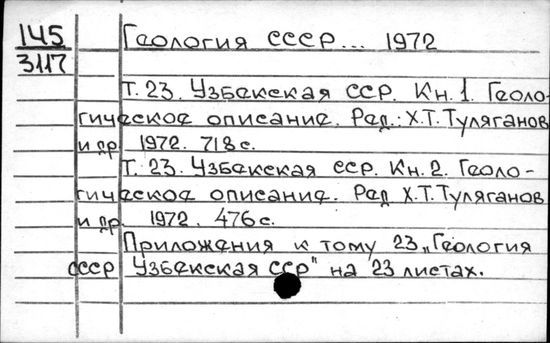 145
3117
Геология СССР... 1972
Т. 23. Узбекская ССР. Кн. 1. Геоло-
гическое описание. Ред.: Х.Т. Туляганов
и др. 1972. 718 с.
Т. 23. Узбекская ССР. Кн. 2. Геоло-
гическое описание. Ред Х.Т. Туляганов
и др. 1972. 476 с.
Приложения к тому 23 „Геология
СССР Узбекская ССР" на 23 листах.